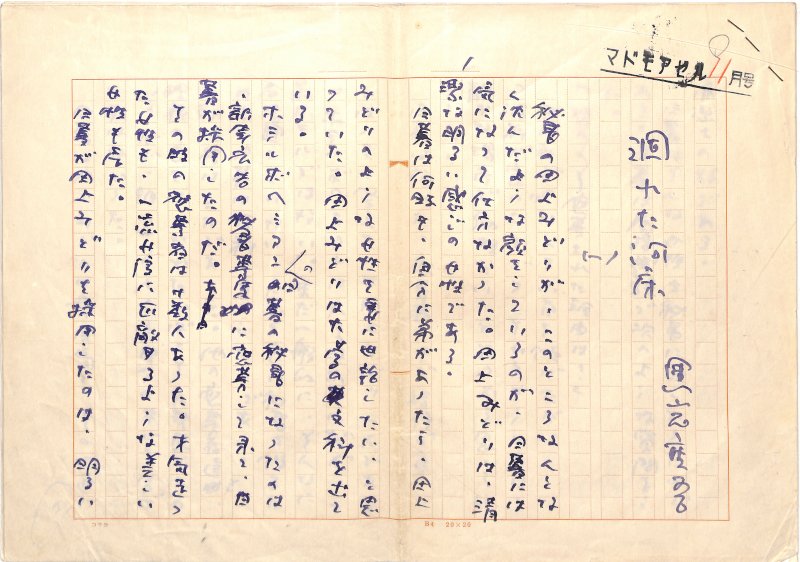 マドモアゼル 11月号
1
涸れた河床
黒岩重吾
(一)
秘書の田上みどりが、このところなんとな
く沈んだような顔をしているのが、日暮には
気になって仕方なかった。田上みどりは、清
潔な明るい感じの女性である。
日暮は何時も、自分に弟があったら、田上
みどりのような女性を妻に世話したい、と思
っていた。田上みどりは大学の英文科を出て
いる。
の日暮の秘書になったのは
、新聞広告の秘書募集に応募して来て、日
暮が採用したのだ。
その時の応募者は十数人あった。才気走っ
た女性も、に匹敵するような美しい
女性も居た。
日暮が田上みどりを採用したのは、明るい
コクヨ
B4 20×20